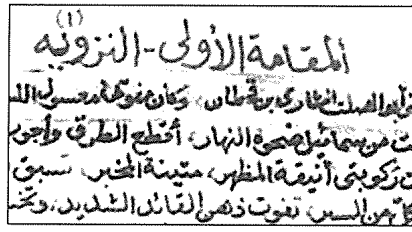 (١)
المقامة الأولى - النزويه
أبو الصلت الشاري بن قحطان، وكان
من سمائل ضحوة النهار، أقطع الطرق وأجوب
ركوبتي أنيقة المظهر، متينة المخبر، تسبق
من السير، تفوت ذهن القائد الشديد،